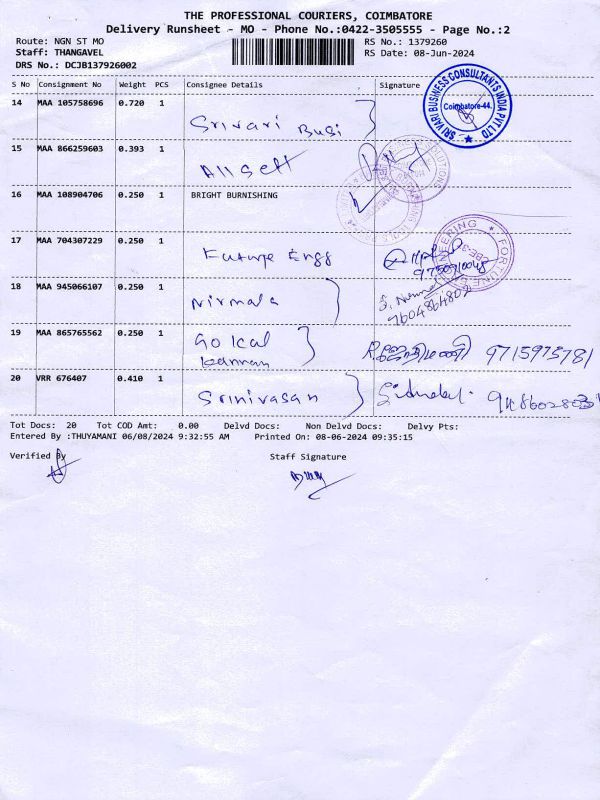 THE PROFESSIONAL COURIERS, COIMBATORE
Delivery Runsheet - MO - Phone No.:0422-3505555 - Page No.:2
Route: NGN ST MO RS No.: 1379260
Staff: THANGAVEL RS Date: 08-Jun-2024
DRS No.: DCJB137926002
S No Consignment No Weight PCS Consignee Details Signature
14 MAA 105758696 0.720 1 Srivari Busi
SRI VARI BUSINESS CONSULTANTS INDIA PVT LTD
Coimbatore-44.
15 MAA 866259603 0.393 1 All sett
16 MAA 108904706 0.250 1 BRIGHT BURNISHING
17 MAA 704307229 0.250 1 Future Engg
FORTUNE
18 MAA 945066107 0.250 1 Nirmala
9604864802
19 MAA 865765562 0.250 1 Gokul
kannan
9715975781
20 VRR 676407 0.410 1 Srinivasan
Tot Docs: 20 Tot COD Amt: 0.00 Delvd Docs: Non Delvd Docs: Delvy Pts:
Entered By :THUYAMANI 06/08/2024 9:32:55 AM Printed On: 08-06-2024 09:35:15
Verified By Staff Signature